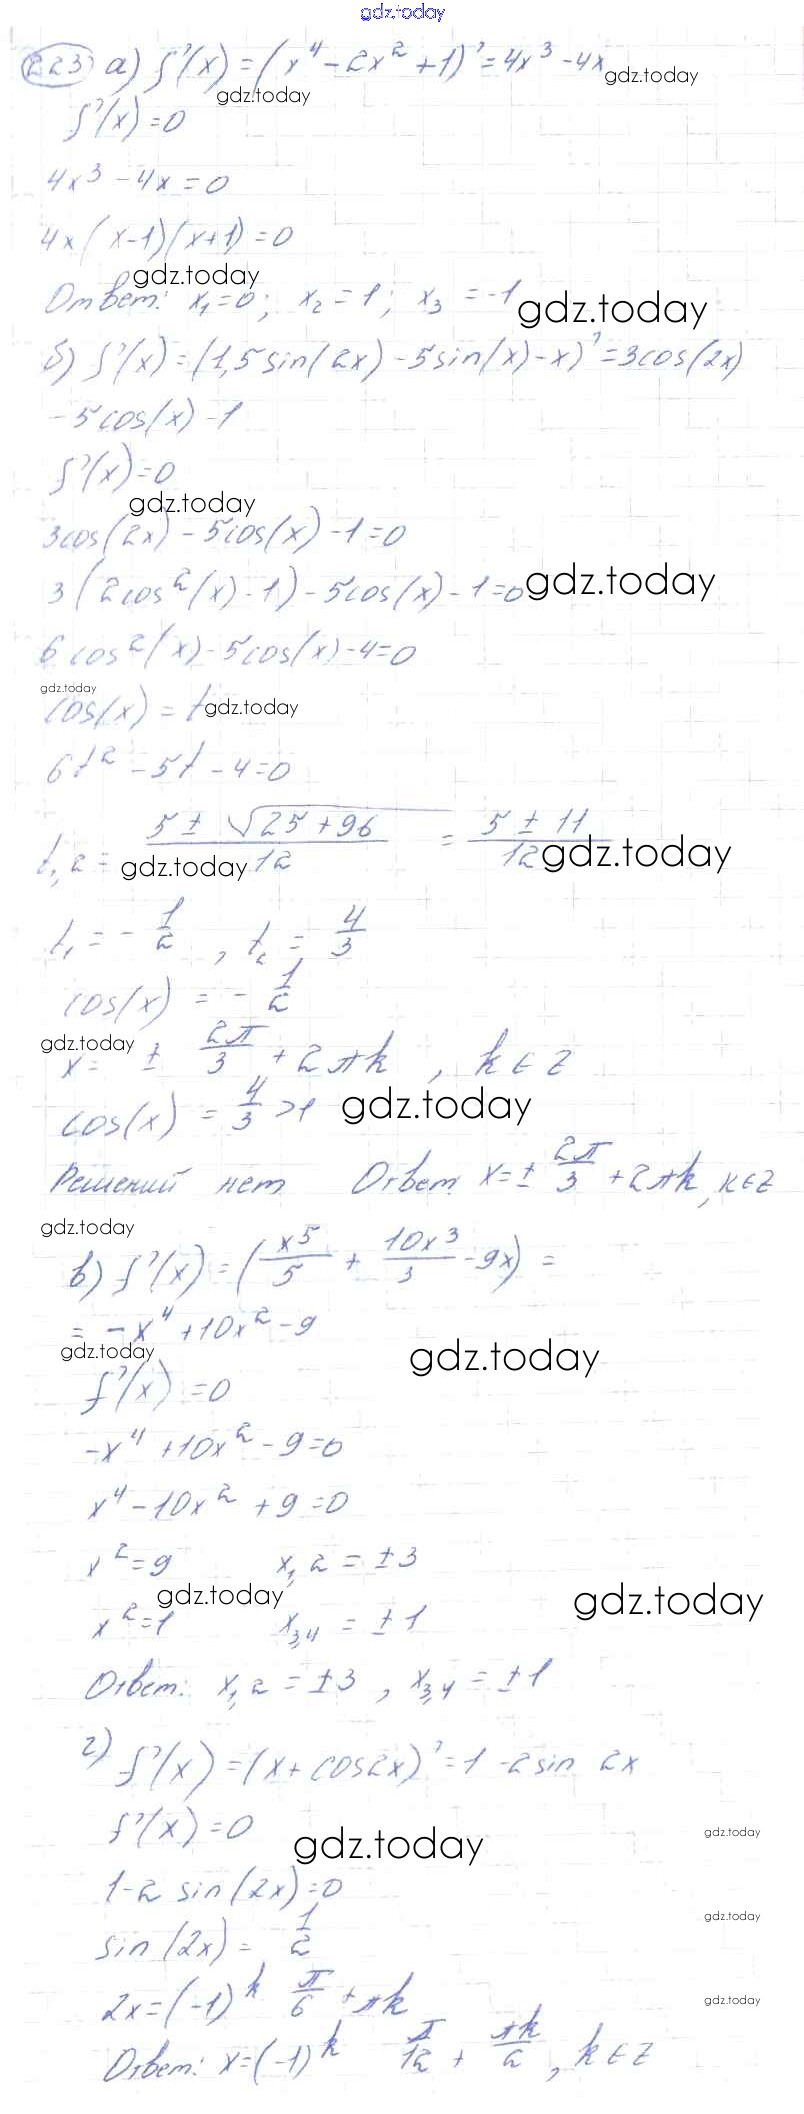 gdz.today
223) а) f'(x) = (x⁴ - 2x² + 1)' = 4x³ - 4x gdz.today
gdz.today
f'(x) = 0
4x³ - 4x = 0
4x(x-1)(x+1) = 0
gdz.today
Ответ: x₁ = 0; x₂ = 1; x₃ = -1 gdz.today
б) f'(x) = (1,5 sin(2x) - 5 sin(x) - x)' = 3cos(2x)
- 5 cos(x) - 1
f'(x) = 0
gdz.today
3cos(2x) - 5cos(x) - 1 = 0
3(2cos²(x) - 1) - 5cos(x) - 1 = 0 gdz.today
6 cos²(x) - 5cos(x) - 4 = 0
gdz.today
cos(x) = t gdz.today
6t² - 5t - 4 = 0
t₁,₂ = (5 ± √(25 + 96))/12 = (5 ± 11)/12 gdz.today
gdz.today
t₁ = - 1/2 , t₂ = 4/3
cos(x) = - 1/2
gdz.today
x = ± 2π/3 + 2πk , k ∈ Z
cos(x) = 4/3 > 1 gdz.today
Решений нет Ответ: x = ± 2π/3 + 2πk, k ∈ Z
gdz.today
в) f'(x) = (x5/5 + 10x³/3 - 9x) =
= -x⁴ + 10x² - 9
gdz.today gdz.today
f'(x) = 0
-x⁴ + 10x² - 9 = 0
x⁴ - 10x² + 9 = 0
x² = 9 x₁,₂ = ± 3
gdz.today gdz.today
x² = 1 x₃,₄ = ± 1
Ответ: x₁,₂ = ± 3 , x₃,₄ = ± 1
г) f'(x) = (x + cos2x)' = 1 - 2 sin 2x
f'(x) = 0 gdz.today gdz.today
1 - 2 sin(2x) = 0
gdz.today
sin(2x) = 1/2
2x = (-1)ᵏ π/6 + πk gdz.today
Ответ: x = (-1)ᵏ π/12 + πk/2 , k ∈ Z